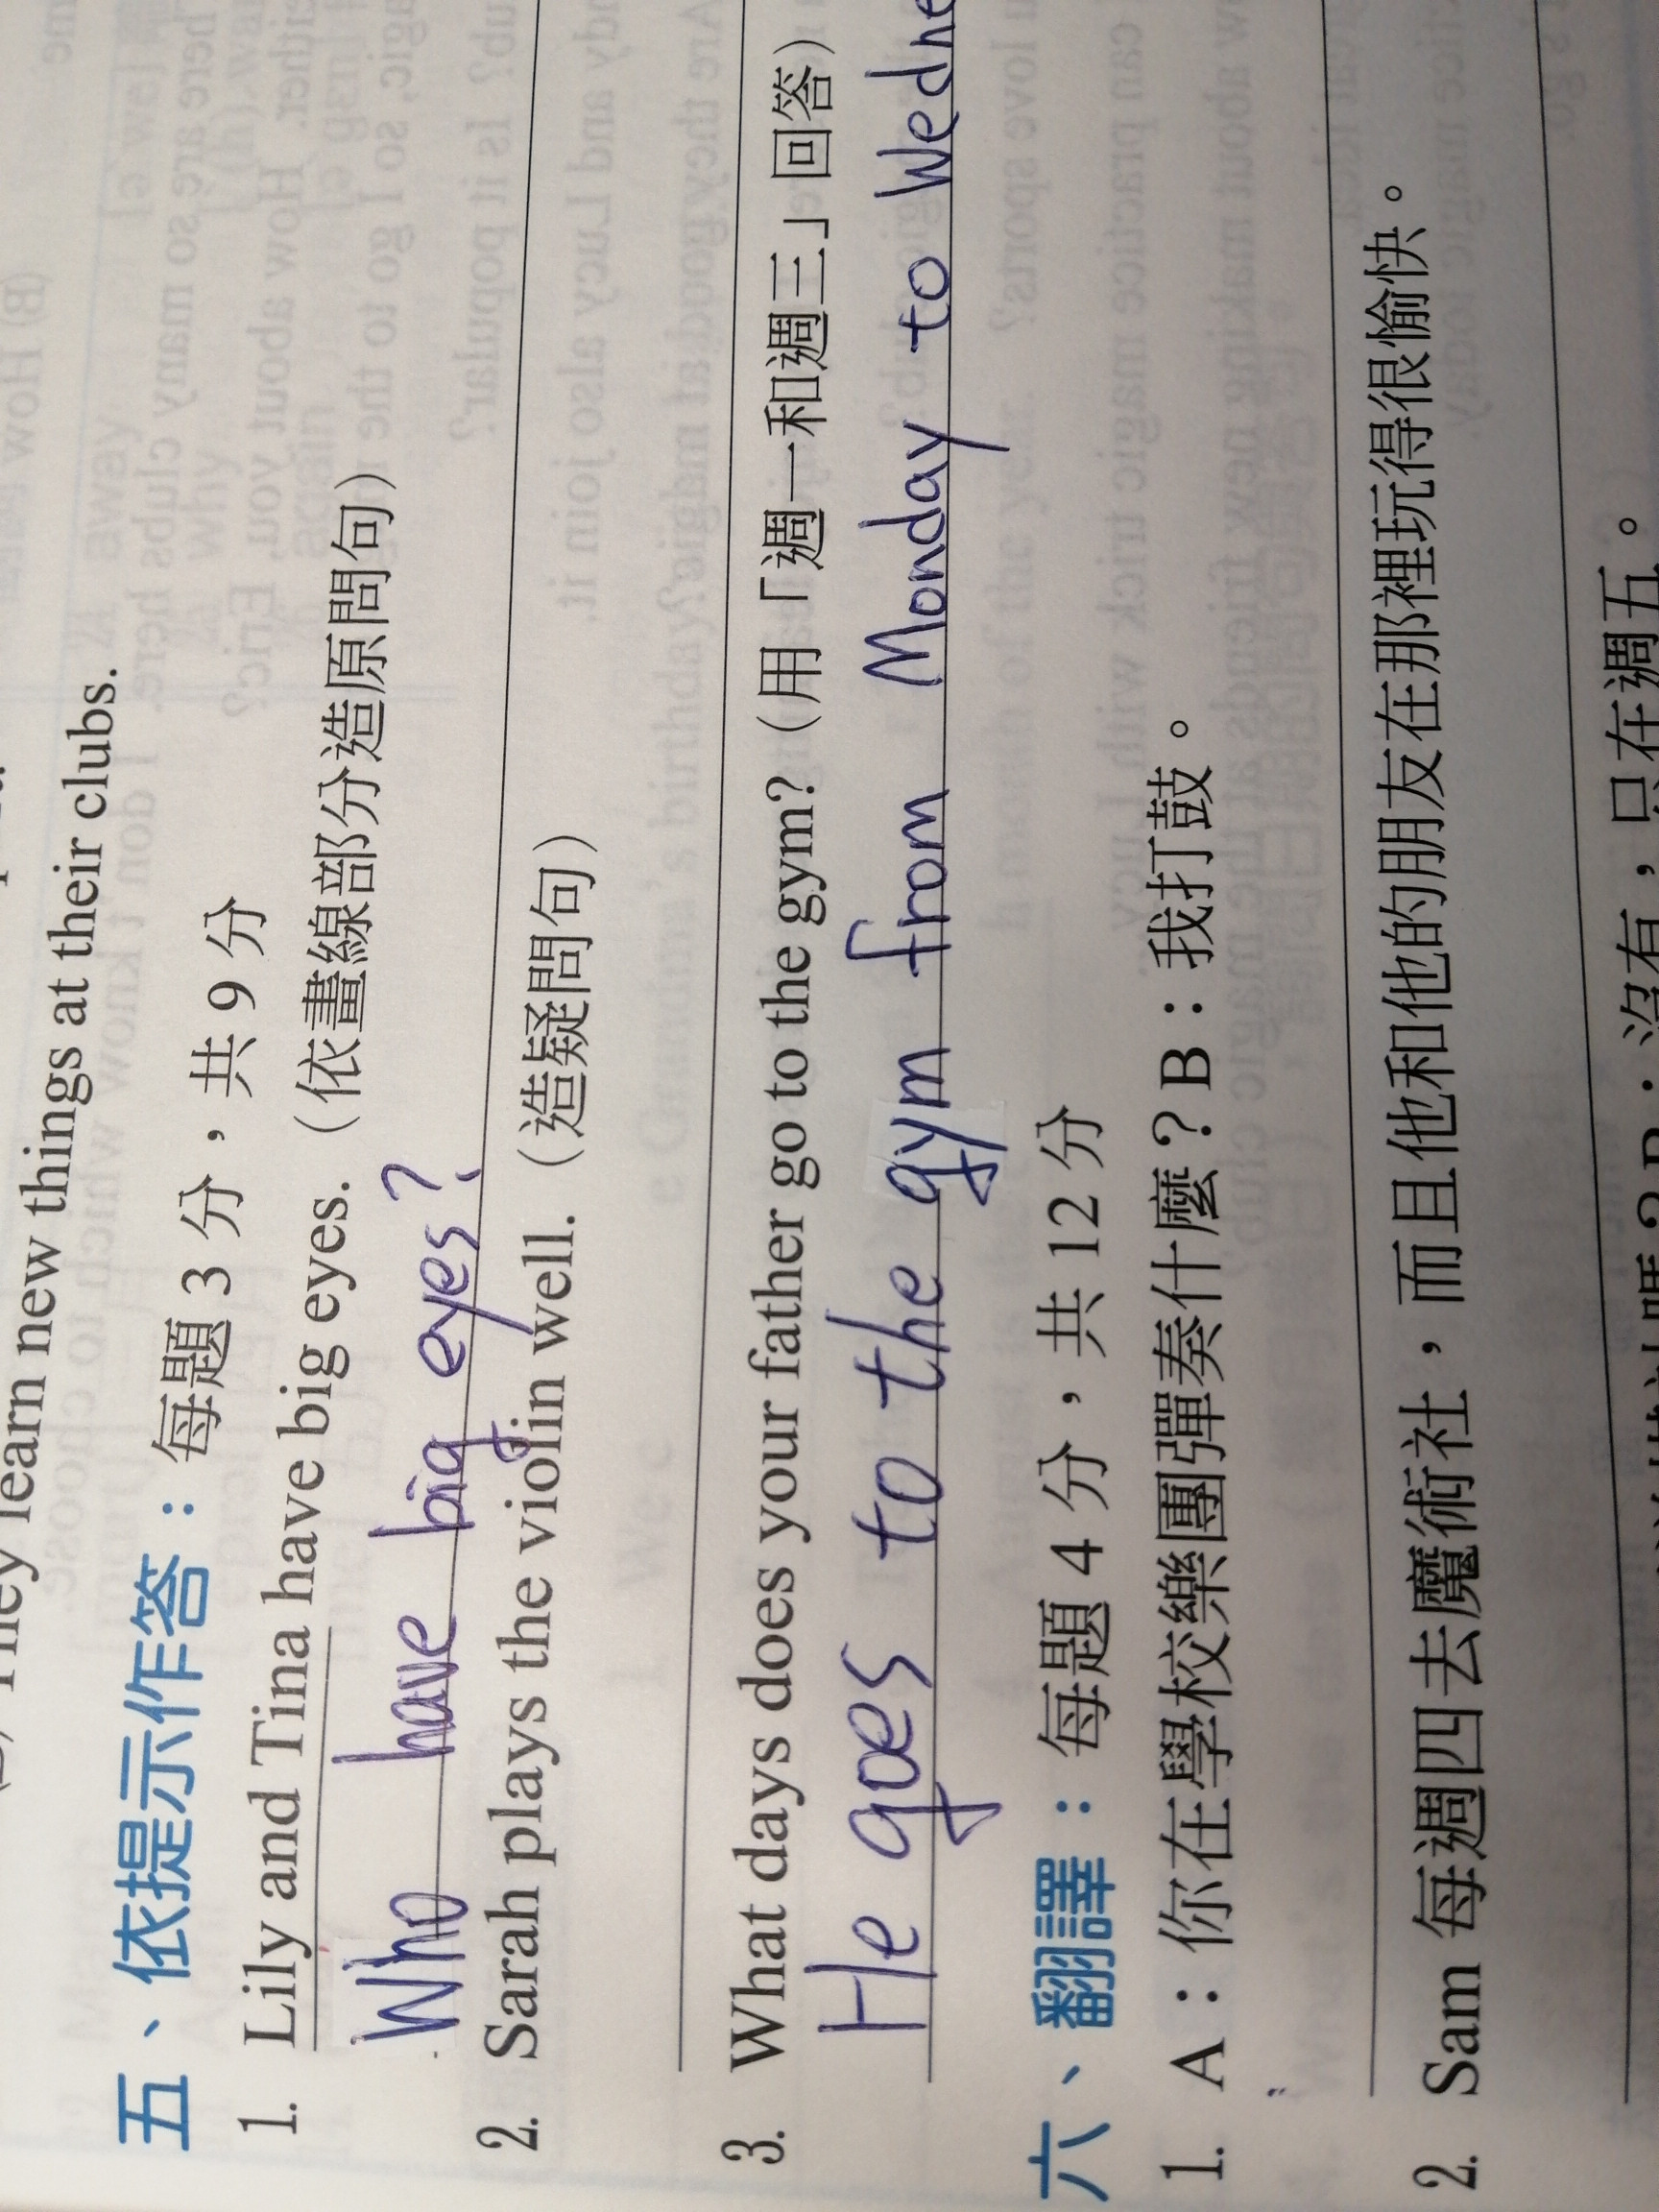 They learn new things at their clubs.
五、依提示作答：每題 3 分，共 9 分
1. Lily and Tina have big eyes.（依畫線部分造原問句）
Who have big eyes?
2. Sarah plays the violin well.（造疑問句）
3. What days does your father go to the gym?（用「週一和週三」回答）
He goes to the gym from Monday to Wedne
六、翻譯：每題 4 分，共 12 分
1. A：你在學校樂團彈奏什麼？B：我打鼓。
2. Sam 每週四去魔術社，而且他和他的朋友在那裡玩得很愉快。
沒有，只在週五。